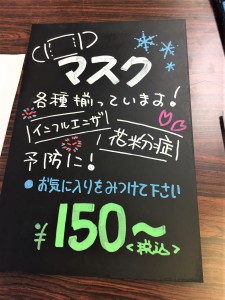 マスク
各種揃っていますよ!
インフルエンザ
花粉症
予防に!
● お気に入りをみつけて下さい
¥150〜
<税込>